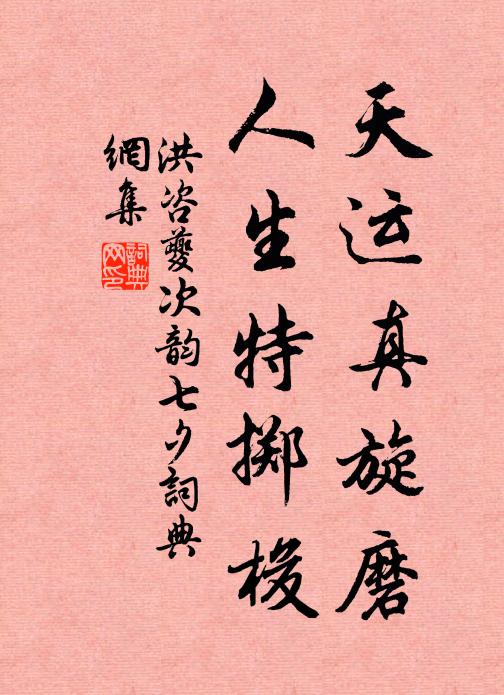 天运真旋磨
人生特掷梭
洪咨夔次韵七夕詞典
網集
詞典網印